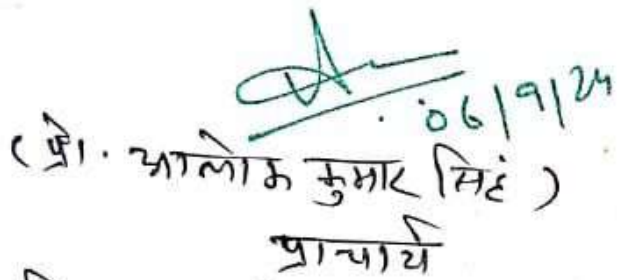 06/9/24
(प्रो. आलोक कुमार सिंह)
प्राचार्य